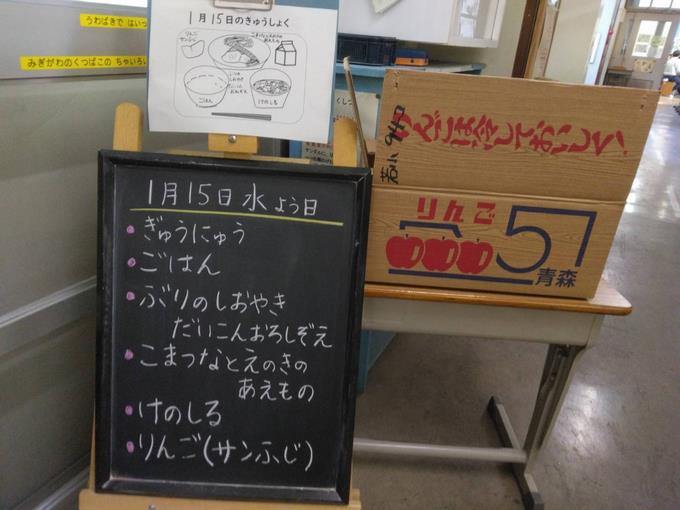 うわばきで はいっ
みぎがわのくつばこの ちゃいろい
1月15日のきゅうしょく
りんご
サンふじ
ごはん
けのしる
1月15日 水よう日
・ぎゅうにゅう
・ごはん
・ぶりのしおやき
だいこんおろしぞえ
・こまつなとえのきの
あえもの
・けのしる
・りんご(サンふじ)
りんごは冷しておいしく!
りんご
青森